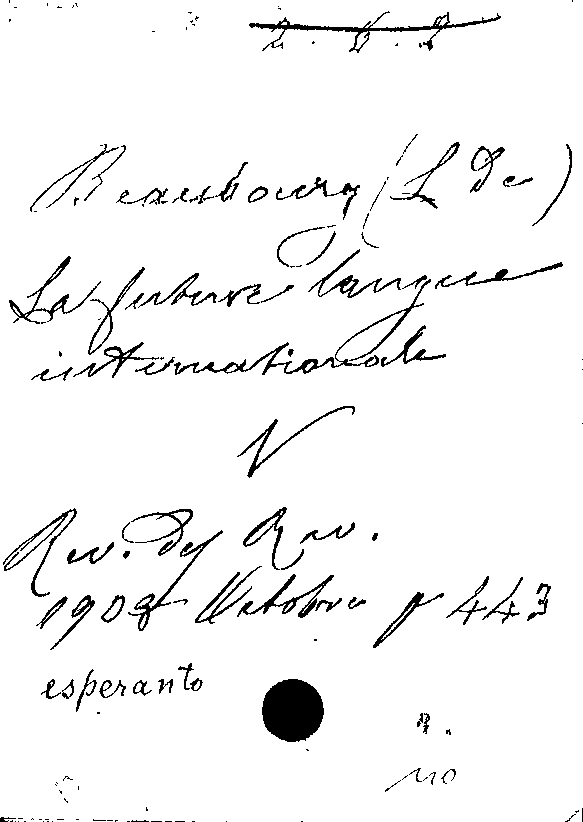 Beaubourg (L de)
La future langue
internationale
V
Rev. des Rev.
1908 Octobre p 443
esperanto